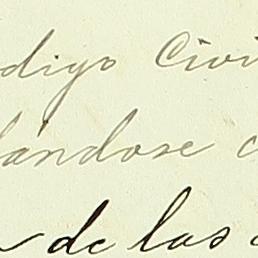 digo Civi
ándose
de las